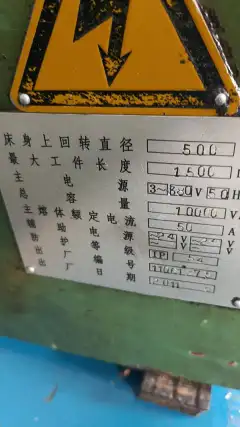 床身上回转直径 500
最大工件长度 1500
主电源 3~380V 50H
总容量 10000V
主熔体额定电流 50 A
辅助电源 24 V
防护等级 IP 54
出厂编号
出厂日期 2011